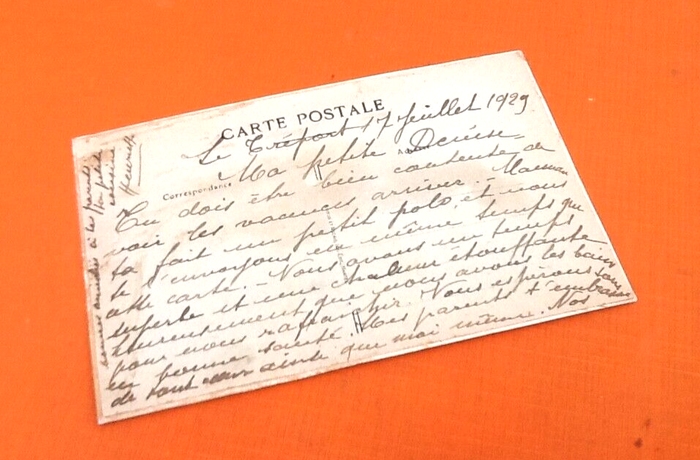 CARTE POSTALE
Le Tréport 17 Juillet 1929
Ma petite Denise
Correspondance
Tu dois être bien contente de
voir les vacances arriver. Maman
ta fait un petit polo, et nous
te l'envoyons en même temps que
cette carte. Nous avons un temps
superbe et une chaleur étouffante
heureusement que nous avons les bains
pour nous rafraichir. Nous espérons
en bonne santé. Mes parents t'embrasse
de tout cœur ainsi que moi même. Nos
bonnes amitiés à tes parents
ta petite
cousine